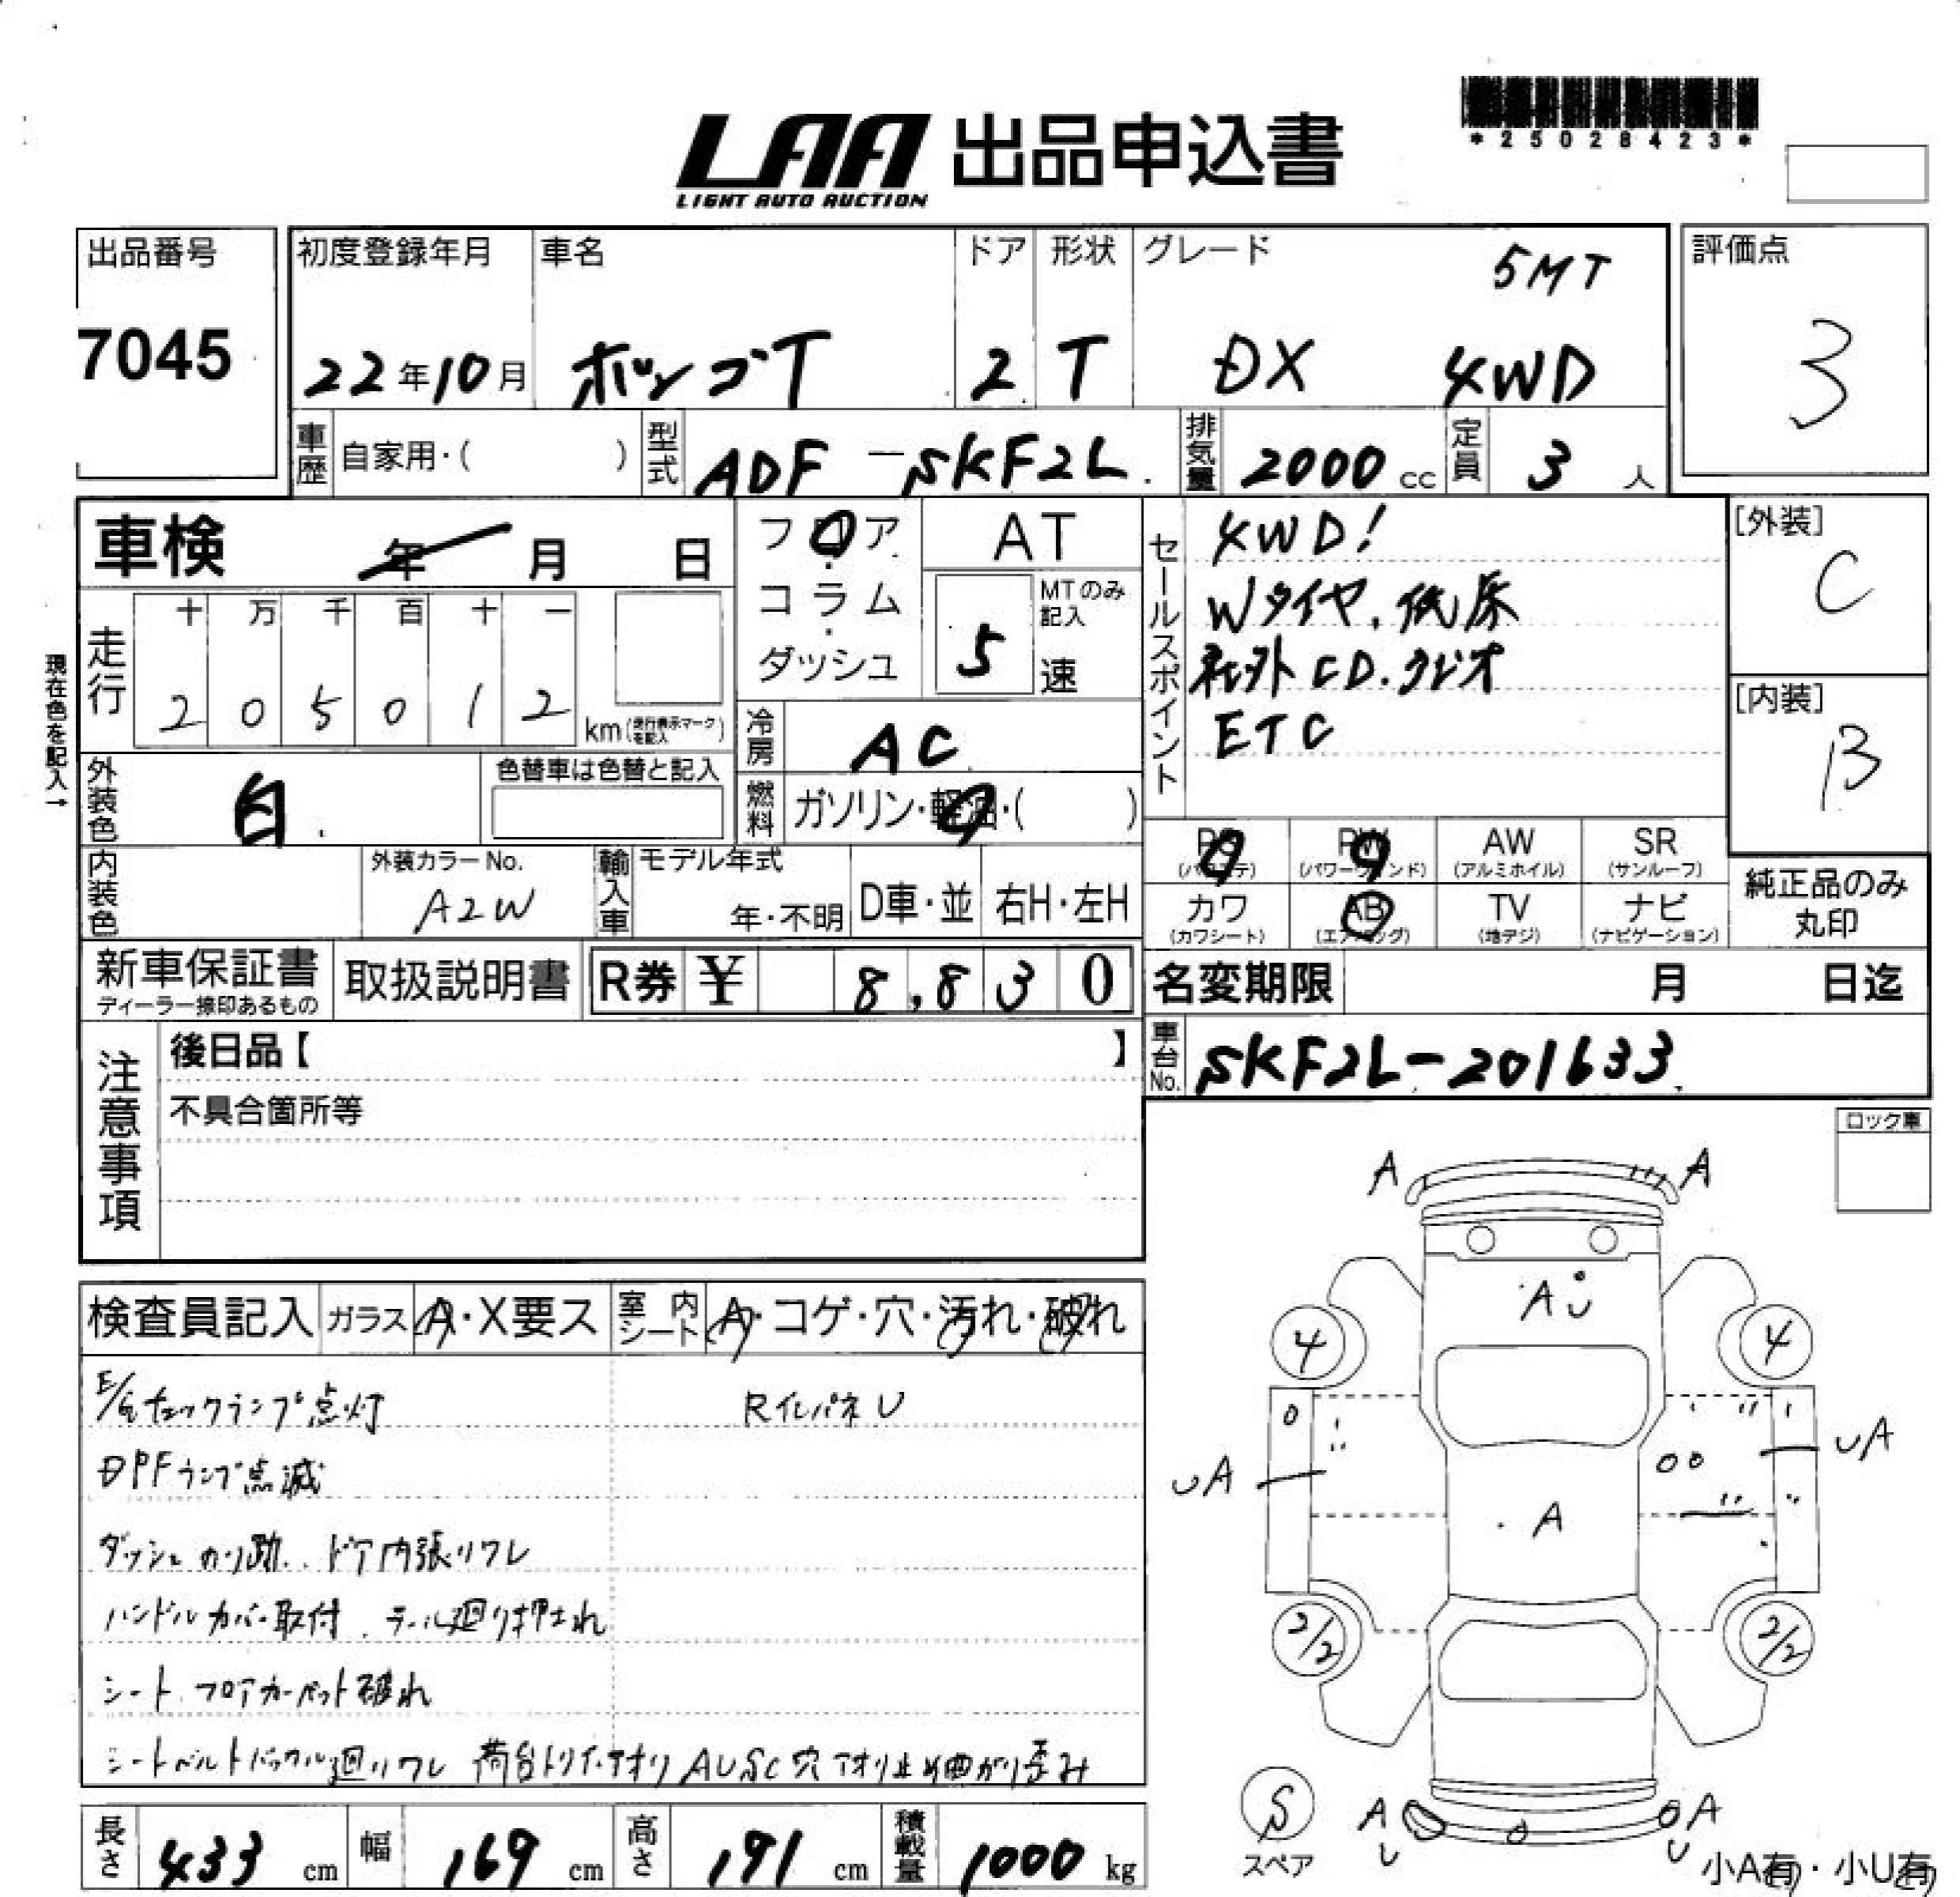 LAA 出品申込書
LIGHT AUTO AUCTION
*25028423*
出品番号
7045
初度登録年月
22年10月
車名
ボンゴT
ドア
2
形状
T
グレード
5MT
DX 4WD
評価点
3
車歴
自家用・( )
型式
ADF-SKF2L
排気量
2000 cc
定員
3 人
車検 年 月 日
フロア・コラム・ダッシュ
AT
MTのみ記入
5 速
セールスポイント
4WD!
Wタイヤ、低床
社外CD.ラジオ
ETC
[外装]
C
[内装]
B
現在色を記入→
走行
十 万 千 百 十 一
2 0 5 0 1 2
km(走行表示マークを記入)
冷房
AC
外装色
白
色替車は色替と記入
燃料
ガソリン・軽油・( )
PS PW AW SR
(パワステ) (パワーウィンド) (アルミホイル) (サンルーフ)
カワ AB TV ナビ
(カワシート) (エアバッグ) (地デジ) (ナビゲーション)
純正品のみ
丸印
内装色
外装カラーNo.
A2W
輸入車
モデル年式
年・不明
D車・並
右H・左H
新車保証書
ディーラー捺印あるもの
取扱説明書
R券 ¥ 8,830
名変期限 月 日迄
車台No.
SKF2L-201633
注意事項
後日品【 】
不具合箇所等
ロック車
検査員記入
ガラス A・X要ス
室内シート A・コゲ・穴・汚れ・破れ
E/gチェックランプ点灯
RインパネU
DPFランプ点滅
ダッシュ のり跡、ドア内張りワレ
ハンドルカバー取付、テール廻り押され
シート、フロアカーペット破れ
シートベルトバックル廻りワレ 荷台トリイ・アオリ AUSC穴 アオリ止め曲がり歪み
A A
A U
4 4
UA UA
A
2/2 2/2
S
スペア
A U A U
小A有・小U有
長さ 433 cm
幅 169 cm
高さ 191 cm
積載量 1000 kg